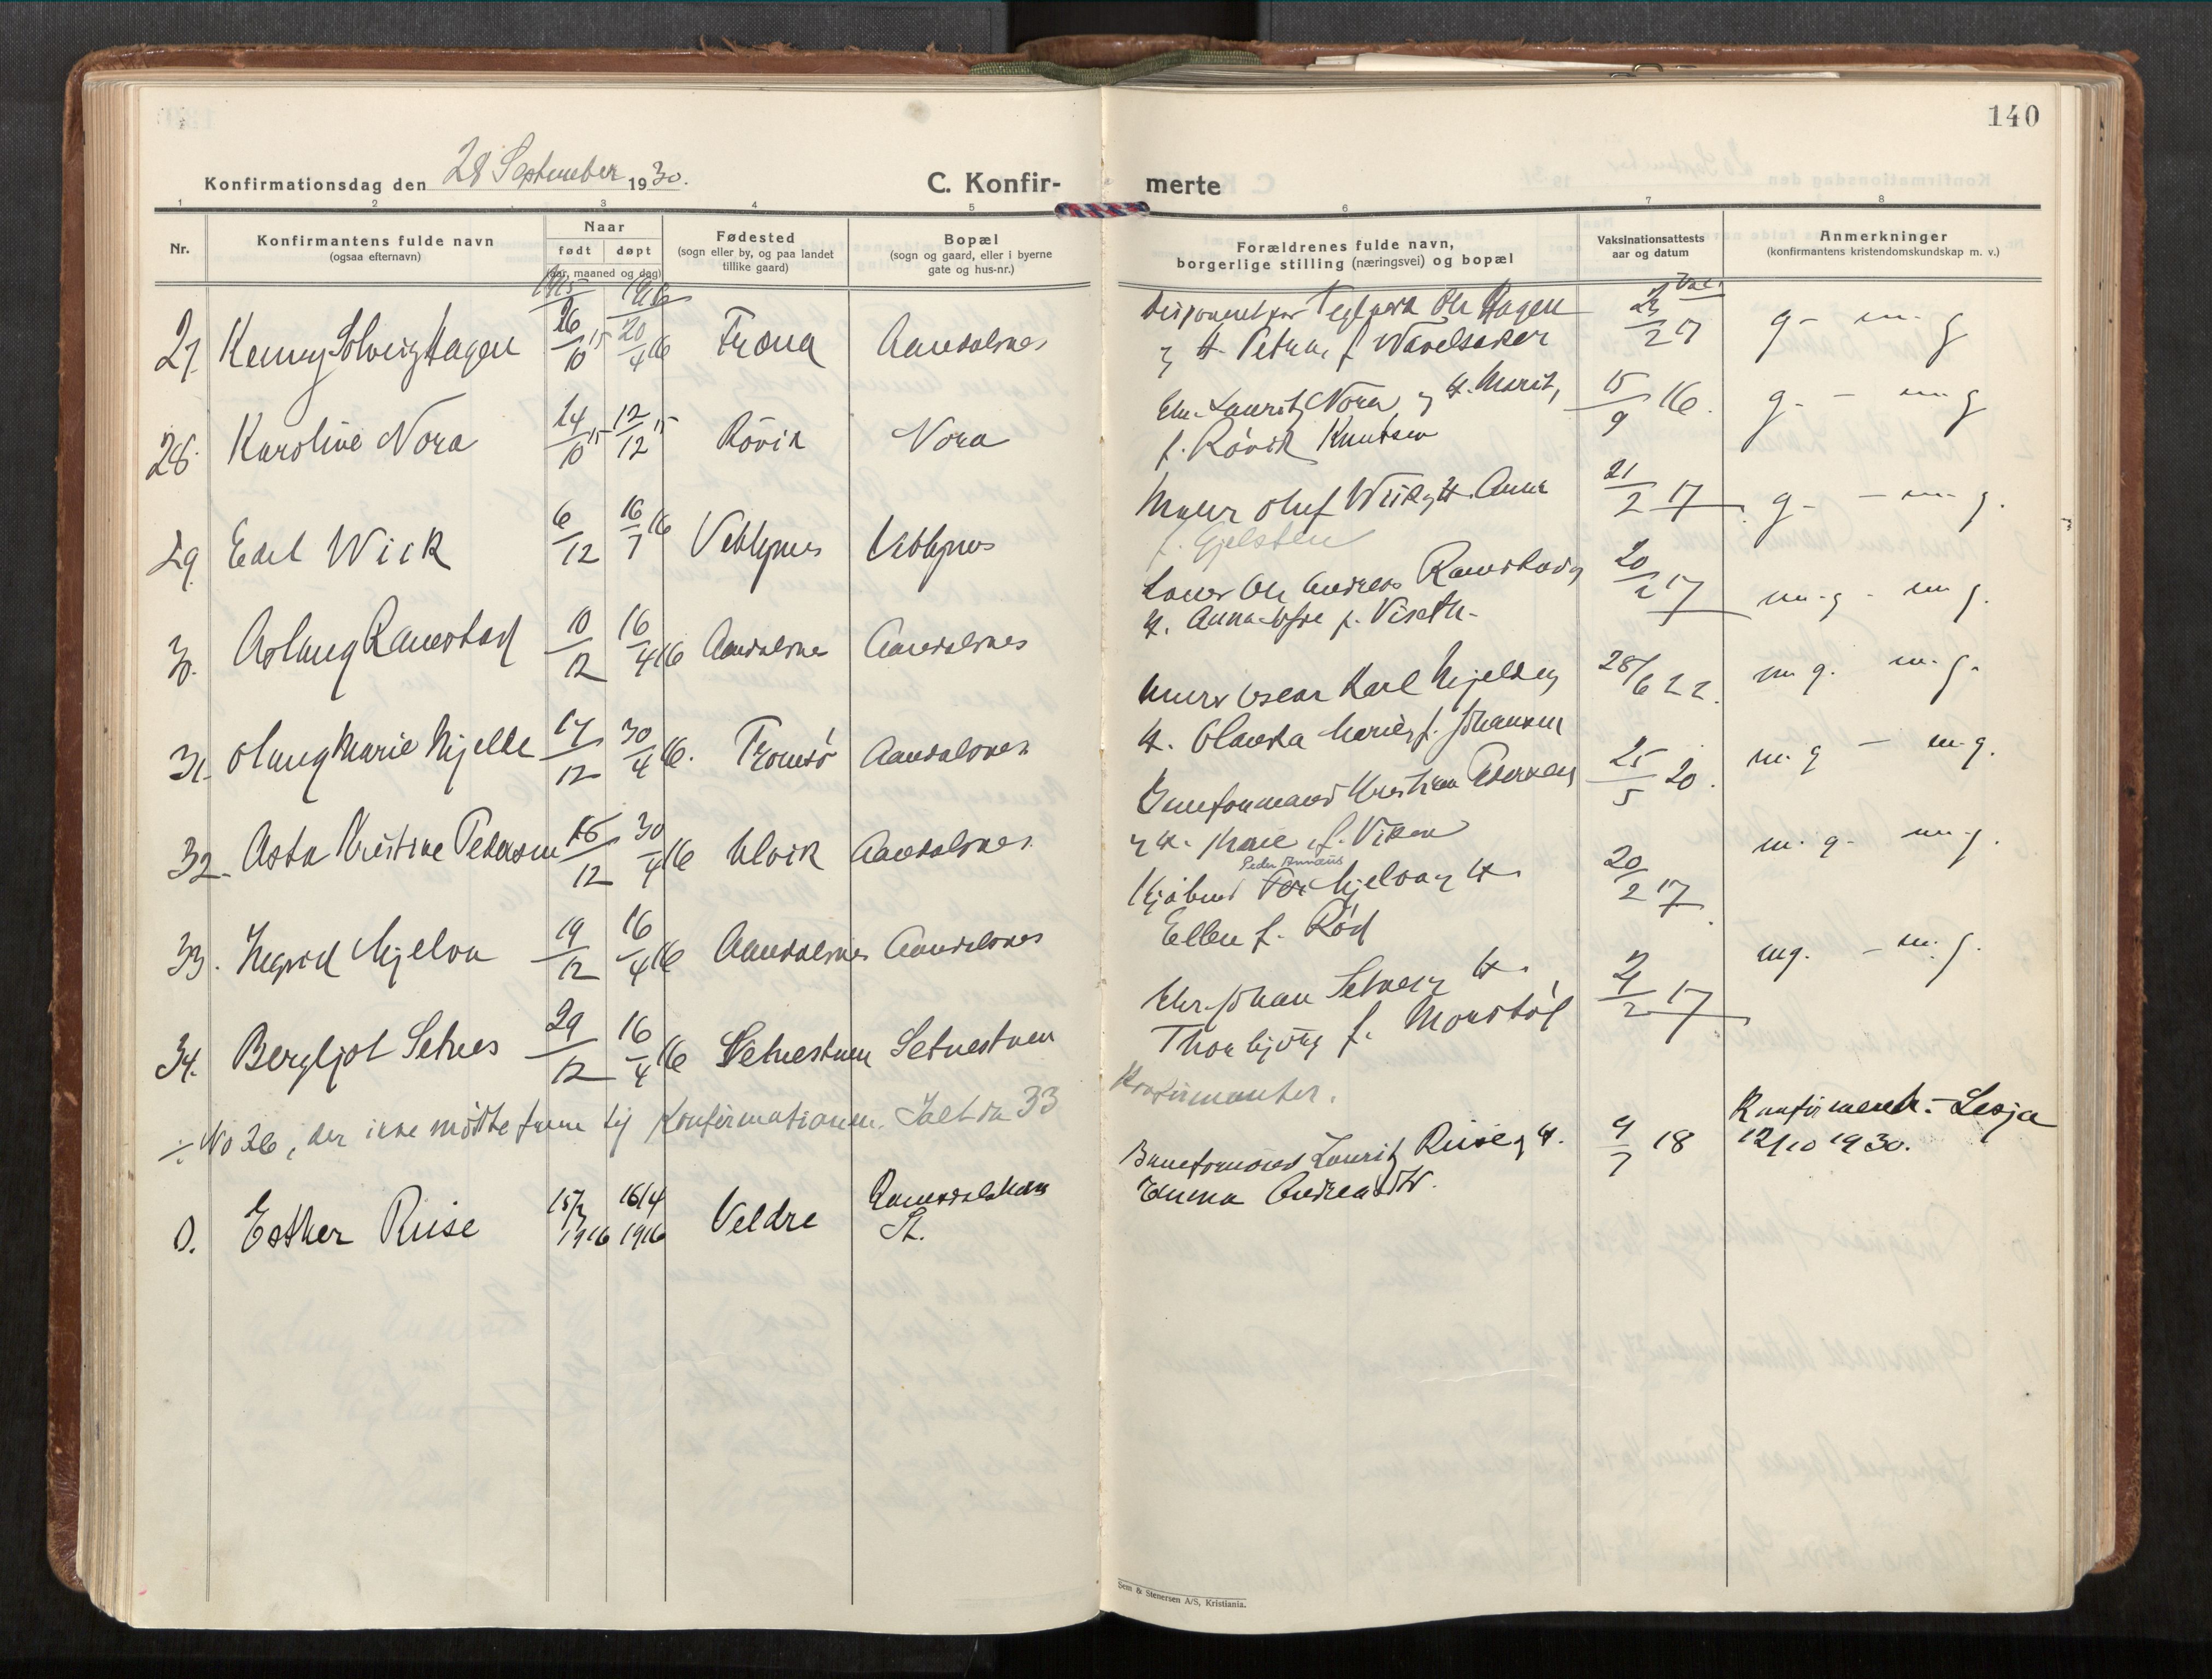 140
Konfirmationsdag den 28 September 1930.
C. Konfir- merte
1 2 3 4 5 6 7 8
Nr.
Konfirmantens fulde navn
(ogsaa efternavn)
Naar
født døpt
(aar, maaned og dag)
Fødested
(sogn eller by, og paa landet
tillike gaard)
Bopæl
(sogn og gaard, eller i byerne
gate og hus-nr.)
Forældrenes fulde navn,
borgerlige stilling (næringsvei) og bopæl
Vaksinationsattests
aar og datum
Anmerkninger
(konfirmantens kristendomskundskap m. v.)
1915 1916
27. Kenny Solveig Hagen 26/10 15 20/4 16 Fræna Aandalsnes
Ole Hagen
og H. Petra f. Wavelsaker
2 17 g - m. g
28. Karoline Nora 14/10 15 12/12 15 Rövik Nora
Lauritz Nora og H. Marit,
f. Rövik Knutsen
15/9 16. g. - m. g
29. Edel Wiik 6/12 16/7 16 Veblgnes Veblgnes
Maler Oluf Wiik og H. Anna
f. Gjelsten
21/2 17 g - - m. g.
30. Aslaug Ramstad 10/12 16/4 16 Aandalsnes Aandalsnes
Ole Andreas Ramstad og
H. Anna f. Viseth.
20/2 17 m. g - m g.
31. Olaug Marie Mjelde 17/12 30/4 16. Tromsö Aandalsnes
Murer Oscar Karl Mjelde og
H. Olausa Marie f. Johansen
28/6 22. m g. m. g.
32. Asta Kristine Pedersen 16/12 30/4 16 Ulvik Aandalsnes
Baneformand Kristian Pedersen
og H. f. Viken
25/5 20. m. g - m. g.
33. Ingrid Mjelva 19/12 16/4 16 Aandalsnes Aandalsnes
Peder
Kjøbmd Mjelva og H.
Ellen f. Röd
20/2 17 m. g - m. g.
34. Bergljot Setnes 29/12 16/4 16 Setnestuen Setnestuen
Johan Setnes og H.
Thorbjörg f. Monstöl
2 17 mg. - m. g.
÷ No 26, der ikke mötte frem til Konfirmationen. Ialt da 33 Konfirmanter.
0. Esther Riise 15/3 1916 16/4 1916 Veldre
St.
Baneformand Lauritz Riise og H.
Emma Andrea
9/7 18
Konfirmert i Lesja
12/10 1930.
Sem & Stenersen A/S, Kristiania.